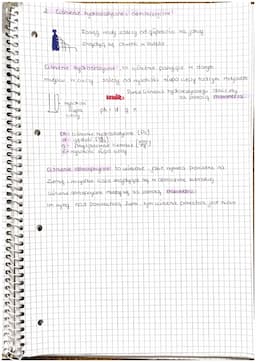 2. Ciśnienie hydrostatyczne i atmosferyczne
Zasięg wody zależy od głębokości na jakiej
znajdują się otworki w butelce
Ciśnienie hydrostatyczne to ciśnienie panujące w danym
miejscu w cieczy, zależy od wysokości słupa cieczy
wysokość
słupa
cieczy
Pomiar ciśnienia hydrostatycznego
za pomocą manometru
ph = d g h
ph - ciśnienie hydrostatyczne [Pa]
d - gęstość
g - przyspieszenie ziemskie
h - wysokość słupa cieczy
Ciśnienie atmosferyczne to ciśnienie jakie wywiera powietrze na
Ziemię i wszystkie ciała znajdujące się w atmosferze ziemskiej
ciśnienie atmosferyczne mierzy się za pomocą
im wyżej nad powierzchnią Ziemi, tym ciśnienie powietrza jest niższe